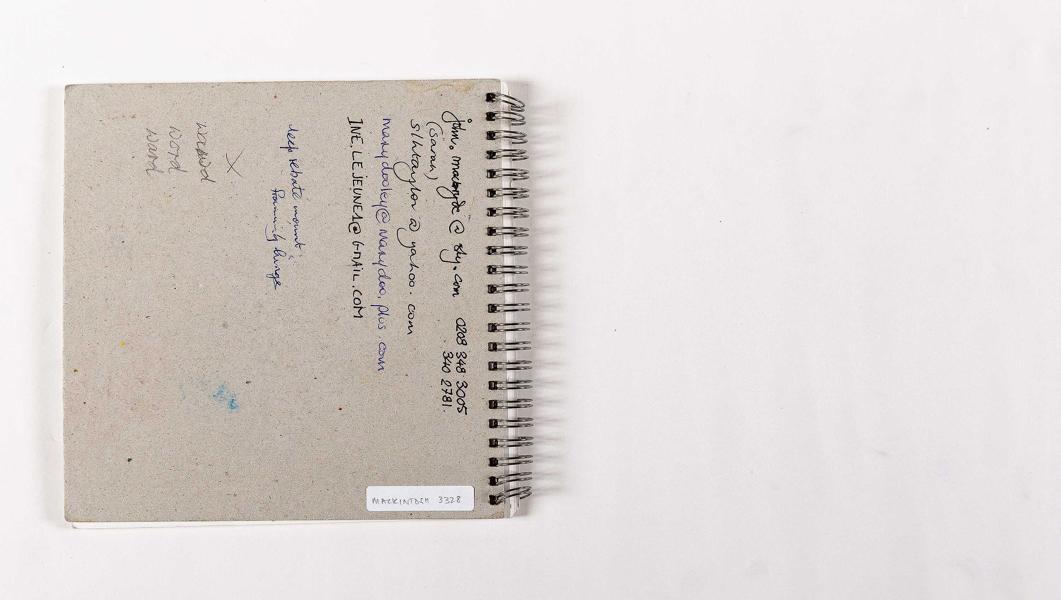 john.macbryde@sky.com 0208 348 3005
(Sarah) 340 2781.
slhtaylor@yahoo.com
marydooley@marydoo.plus.com
INE.LEJEUNE1@GMAIL.COM
deep rebate mount
framing hinge
X
word
ward
MACKINTOSH 3328